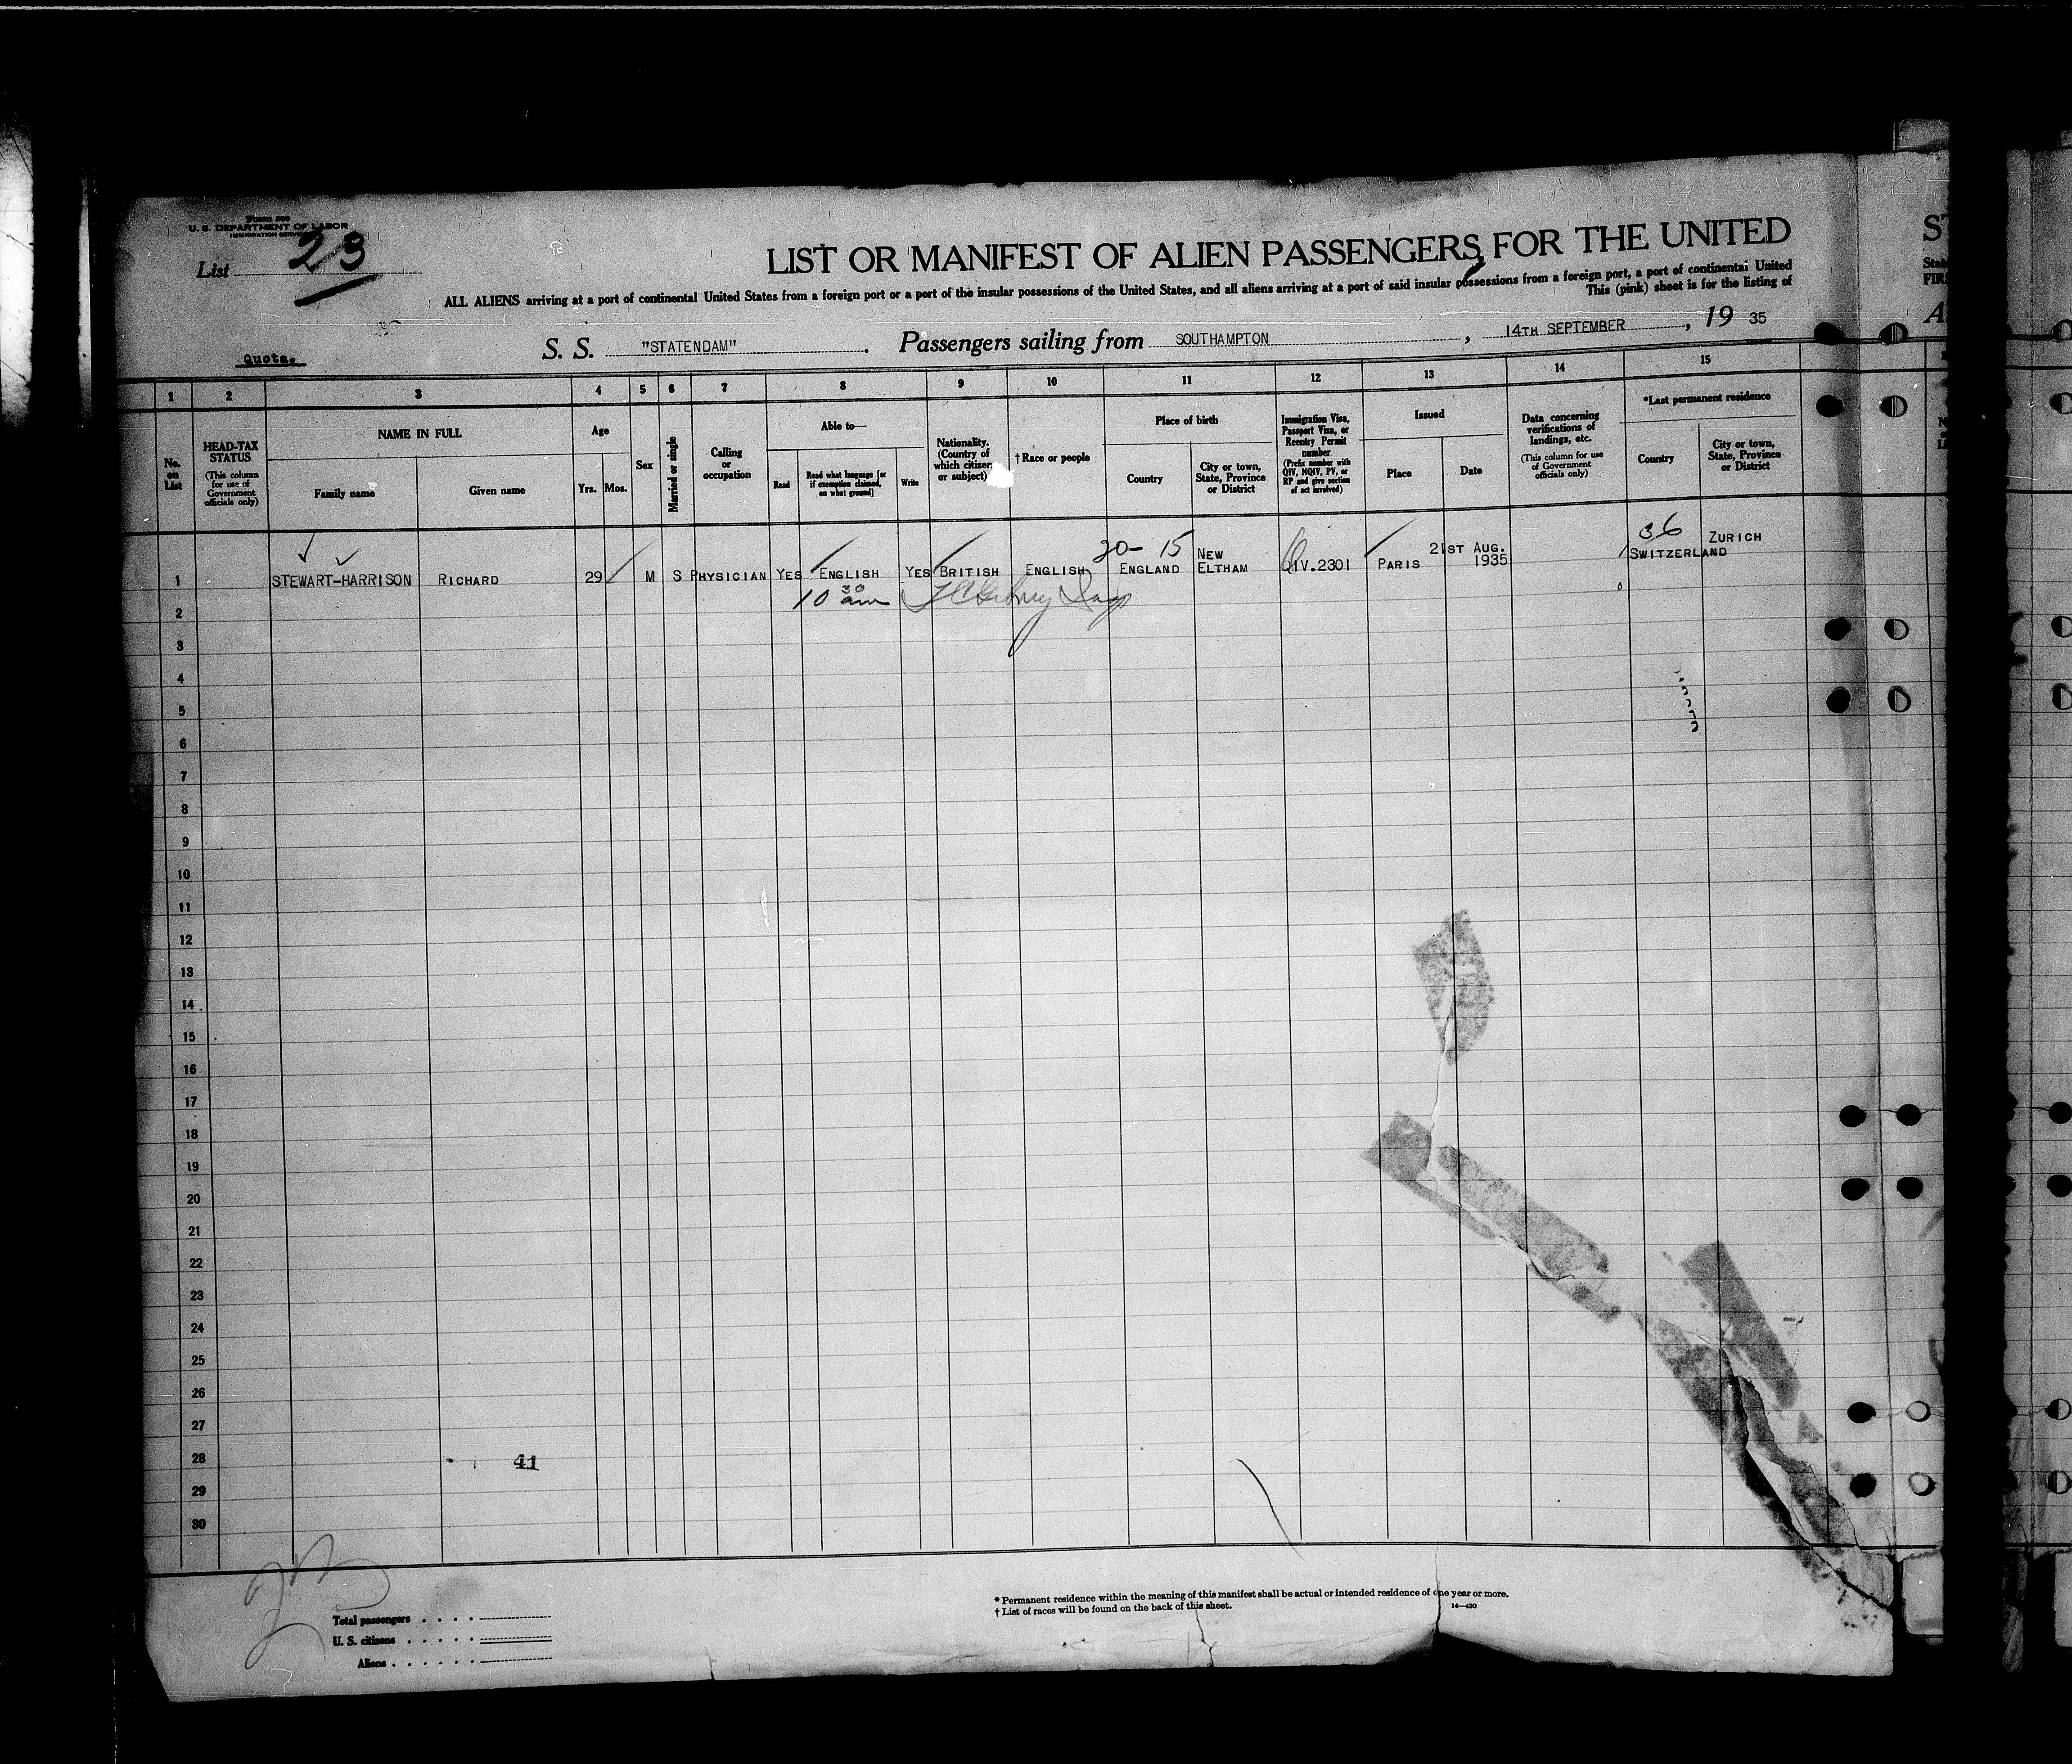 Form 500
U. S. DEPARTMENT OF LABOR
IMMIGRATION SERVICE
List 23
LIST OR MANIFEST OF ALIEN PASSENGERS FOR THE UNITED
ALL ALIENS arriving at a port of continental United States from a foreign port or a port of the insular possessions of the United States, and all aliens arriving at a port of said insular possessions from a foreign port, a port of continental United
This (pink) sheet is for the listing of
Quota.
S. S. "STATENDAM". Passengers sailing from SOUTHAMPTON, 14TH SEPTEMBER, 19 35
1 2 3 4 5 6 7 8 9 10 11 12 13 14 15
No. on List
HEAD-TAX STATUS
(This column for use of Government officials only)
NAME IN FULL
Family name
Given name
Age
Yrs. Mos.
Sex
Married or single
Calling or occupation
Able to—
Read
Read what language [or if exemption claimed, on what ground]
Write
Nationality. (Country of which citizen or subject)
† Race or people
Place of birth
Country
City or town, State, Province or District
Immigration Visa, Passport Visa, or Reentry Permit number
(Prefix number with QIV, NQIV, PV, or RP and give section of act involved)
Issued
Place
Date
Data concerning verifications of landings, etc.
(This column for use of Government officials only)
*Last permanent residence
Country
City or town, State, Province or District
20- 15
36
1 STEWART-HARRISON RICHARD 29 M S PHYSICIAN YES ENGLISH YES BRITISH ENGLISH ENGLAND NEW ELTHAM QIV.2301 PARIS 21ST AUG. 1935 SWITZERLAND ZURICH
10 30 am
2
3
4
5
6
7
8
9
10
11
12
13
14
15
16
17
18
19
20
21
22
23
24
25
26
27
28 41
29
30
Total passengers
U. S. citizens
Aliens
* Permanent residence within the meaning of this manifest shall be actual or intended residence of one year or more.
† List of races will be found on the back of this sheet.
14—430